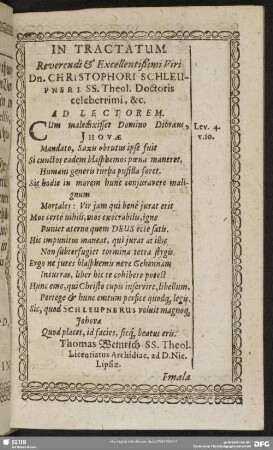 IN TRACTATUM
Reverendi & Excellentißimi Viri
Dn. CHRISTOPHORI SCHLEU-
PNERI SS. Theol. Doctoris
celeberrimi, &c.
AD LECTOREM.
CUm maledixisset Domino Dibram,
Lev. 4.
v. 10.
JHOVÆ
Mandato, Saxis obrutus ipse fuit
Si cunctos eadem blasphemos pœna maneret,
Humani generis turba pusilla foret.
Sic hodie in morem hunc conjuravere mali-
gnum
Mortales: Vir jam qui bene jurat erit
Mos certe nihili, mos execrabilis, igne
Puniet aterna quem DEUS ecce satis.
Hic impunitus maneat, qui jurat at illic
Non subterfugiet tormina tetra stygis.
Ergo ne jures blasphemis neve Gehennam
Incurras, liber hic te cohibere potest
Hunc eme, qui Christo cupis inservire, libellum.
Pertege & hunc emtum perſice quodq; legis.
Sic, quod SCHLEUPNERUS voluit magnoq;
Jehovæ
Quod placet, id facies, sicq; beatus eris.
Thomas Weinrich SS. Theol.
Licentiatus Archidiac. ad D. Nic.
Lipsiæ.
SLUB
DFG